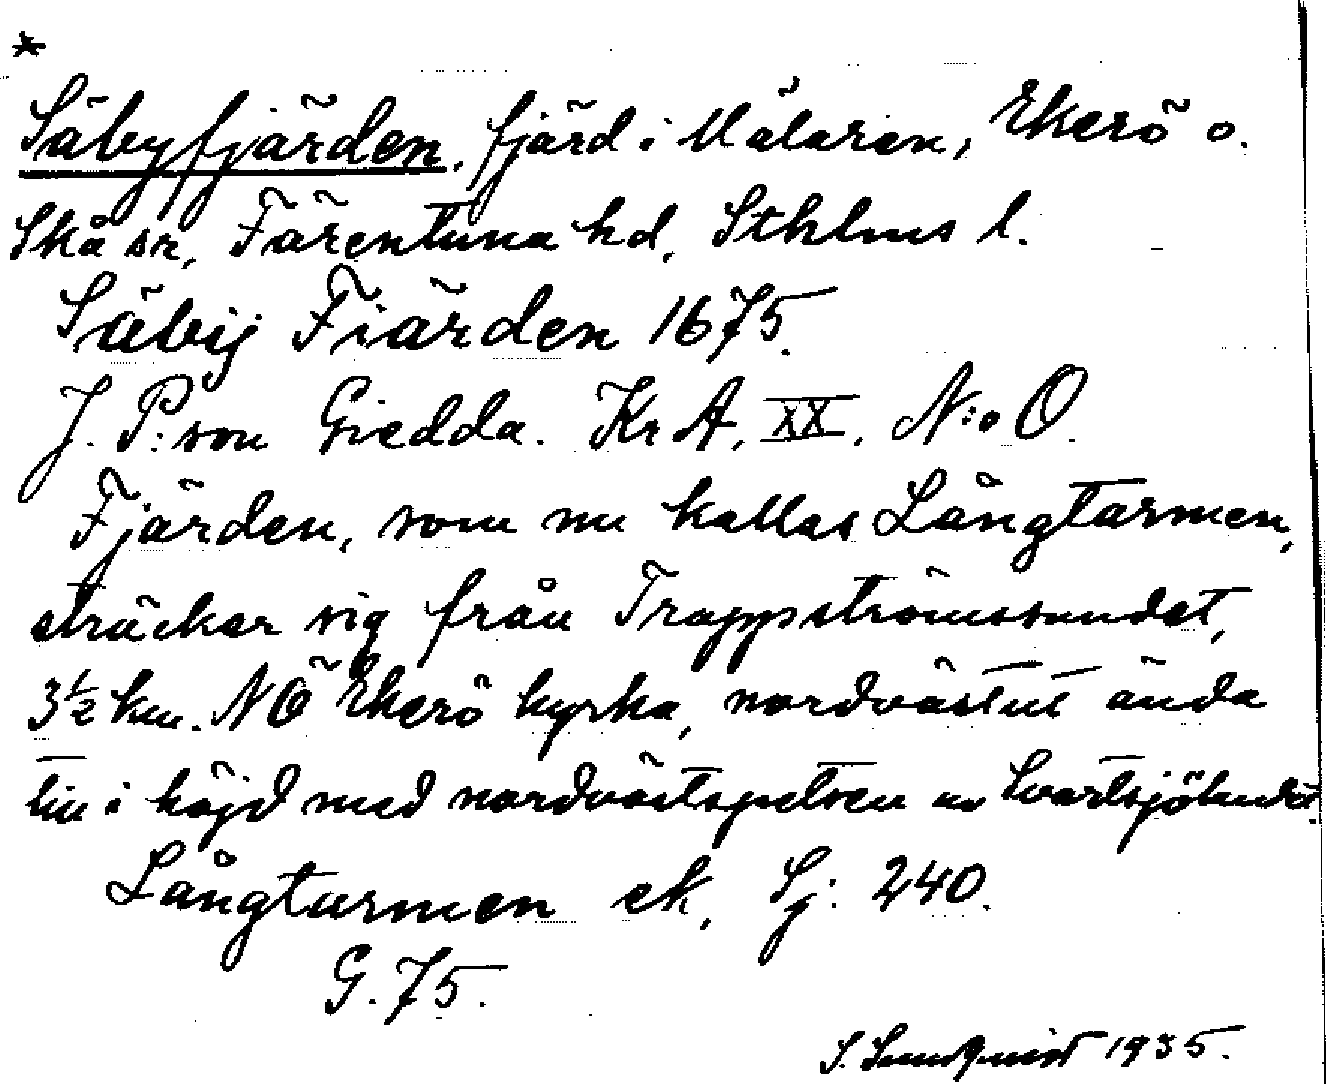 *
Säbyfjärden, fjärd i Mälaren, Ekerö o.
Skå sn, Färentuna hd, Sthlms l.
Säbij Fiärden 1675.
J. P:son Giedda. KrA, XX, N:o O.
Fjärden, som nu kallas Långtarmen,
sträcker sig från Trappströmssundet,
3½ km. NÖ Ekerö kyrka, nordvästut ända
till i höjd med nordvästspetsen av Svartsjölandet.
Långtarmen ek, Sj: 240.
G. 75.
S. Sundquist 1935.